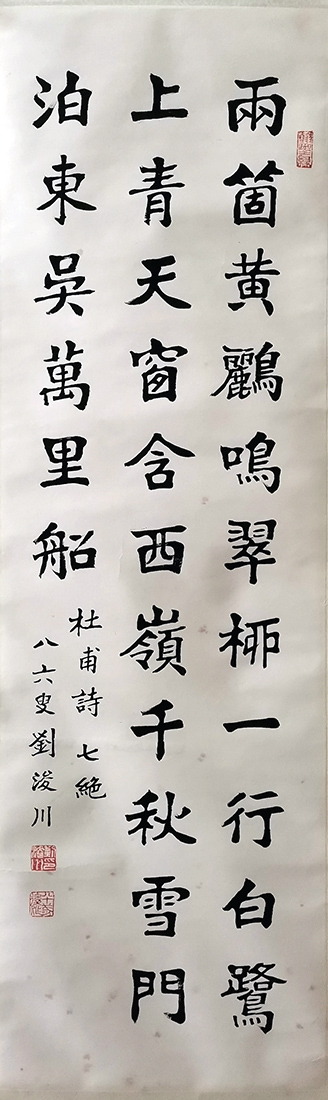 兩箇黄鸝鳴翠柳一行白鷺
上青天窗含西嶺千秋雪門
泊東吳萬里船
杜甫詩七絶
八六叟劉浚川